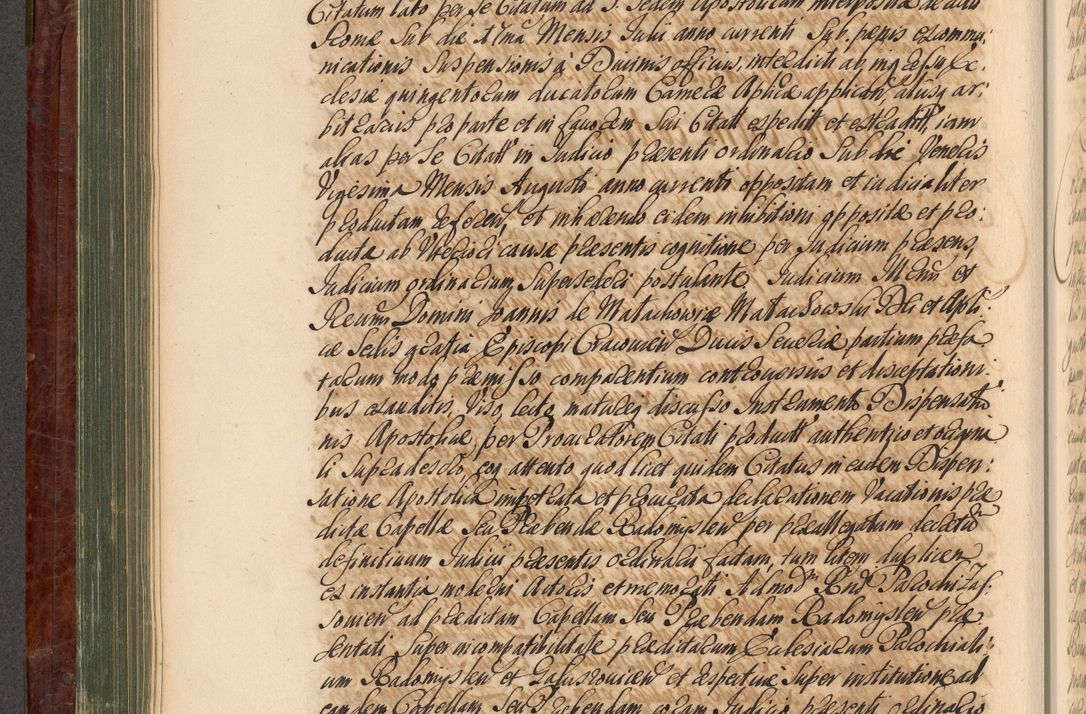 Citatum lato per se Citatum ad S. Sedem Apostolicam interposita de actu
Romæ sub die Xima Mensis Julii anno currenti sub penis excommu:
nicationis suspensionis à Divinis officiis, interdicti ab ingressu Ec:
clesiæ quingentorum ducatorum Cameræ Aplicæ applicon, aliisq ar:
bitrariis pro parte et in favorem sui Citati expedit et extradit, iam
alias per se Citat in Judicio præsenti ordinario sub die Veneris
Vigesima Mensis Augusti anno currenti oppositam et iudicialiter
productam referen, et inhærendo eidem inhibitioni oppositæ et pro:
ductæ ab ulteriori causæ præsentis cognitione per Judicium præsens,
Judicium ordinarium, supersederi postulante Judicium Illmi et
Reumi Domini Joannis de Małachowice Małachowski Dei et Apli:
cæ Sedis gratia Episcopi Cracovien Ducis Severiæ partium præfa
tarum modo præmisso comparentium controversiis et disceptationi:
bus exauditis, viso, lecto, matureq discusso Instrumento Dispensatio
nis Apostolicæ per Procuratorem Citati product authentico et origina
li supradescto, eoq attento quod licet quidem Citatus in eadem Dispen:
satione Apostolica impetrata et procurata declarationem Vacationis præ
dictæ Capellæ seu Præbendæ Radomyslen per præallegatum decretum
definitivum Judicii præsentis ordinarii factam, tum litem duplicem
ex instantia moderni Actoris et memorati Admodm Rndi Parochi Zas:
sovien ad prædictam Capellam seu Præbendam Radomyslen præ
sentati super incompatibilitate prædictarum Ecclesiarum Parochiali:
um Radomyslen et Galuszovien et respective super institutione ad
eandem Capellam seu Præbendam coram Judicio præsenti ordinario